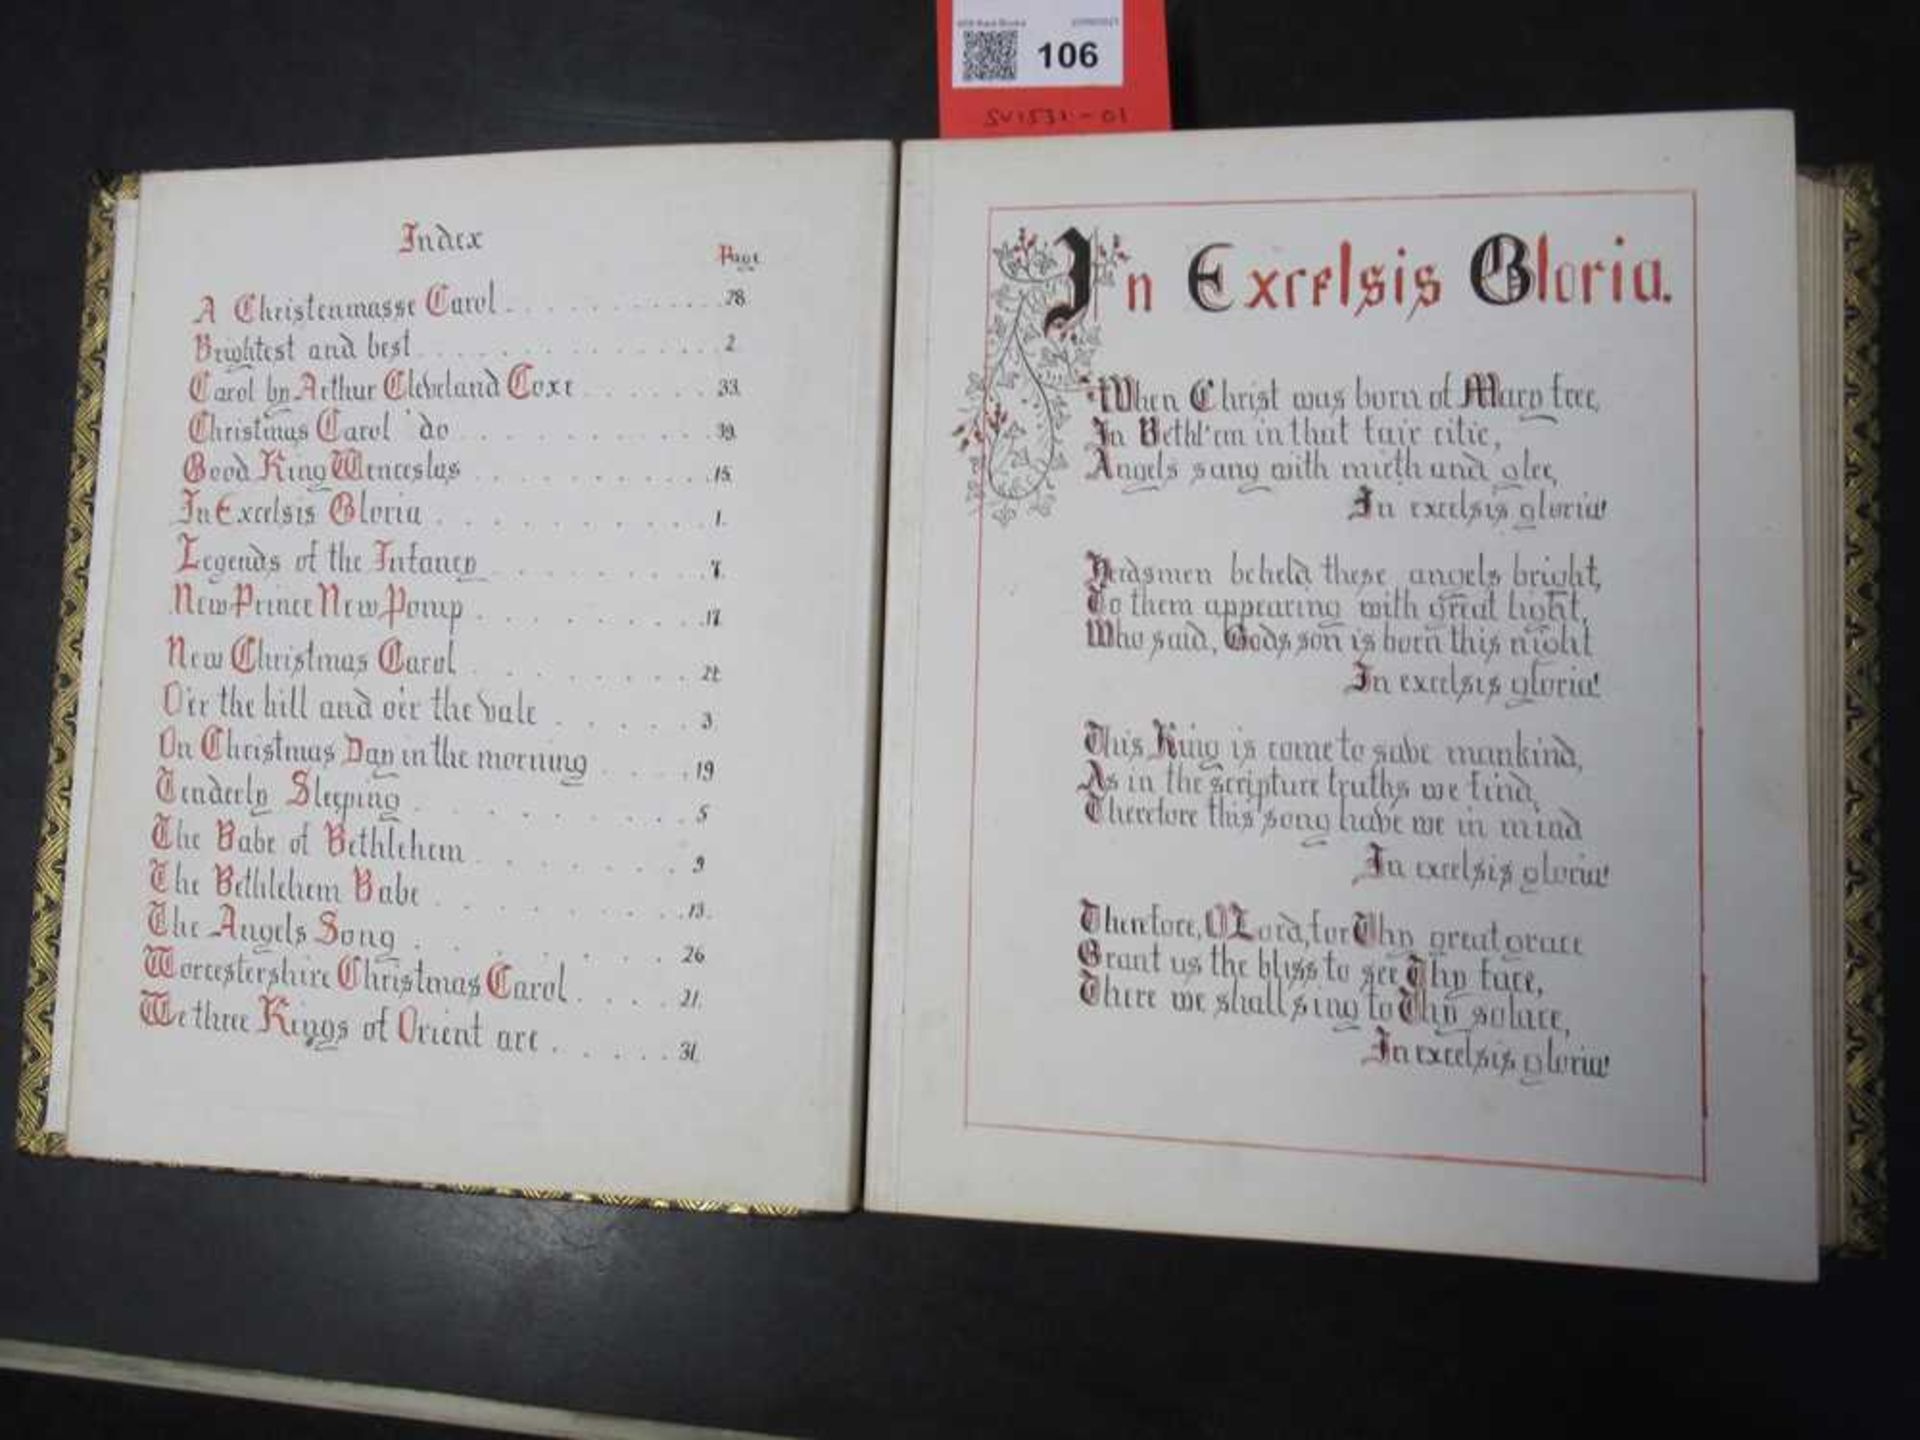 106
SV1531-01
Index
Page
A Christenmasse Carol 28
Brightest and best 2
Carol by Arthur Cleveland Coxe 33.
Christmas Carol do 39.
Good King Wenceslas 15.
In Excelsis Gloria 1.
Legends of the Infancy 7.
New Prince New Pomp 17.
New Christmas Carol
O'er the hill and o'er the vale 3
On Christmas Day in the morning 19
Tenderly Sleeping 5
The Babe of Bethlehem 9
The Bethlehem Babe 13.
The Angels Song 26
Worcestershire Christmas Carol 21.
We three Kings of Orient are 31.
In Excelsis Gloria.
When Christ was born of Mary free,
In Bethl'em in that fair citie,
Angels sang with mirth and glee,
In excelsis gloria!
Herdsmen beheld these angels bright,
To them appearing with great light,
Who said, Gods son is born this night
In excelsis gloria!
This King is come to save mankind,
As in the scripture truths we find,
Therefore this song have we in mind
In excelsis gloria!
Therefore, O Lord, for Thy great grace
Grant us the bliss to see Thy face,
There we shall sing to Thy solace,
In excelsis gloria!